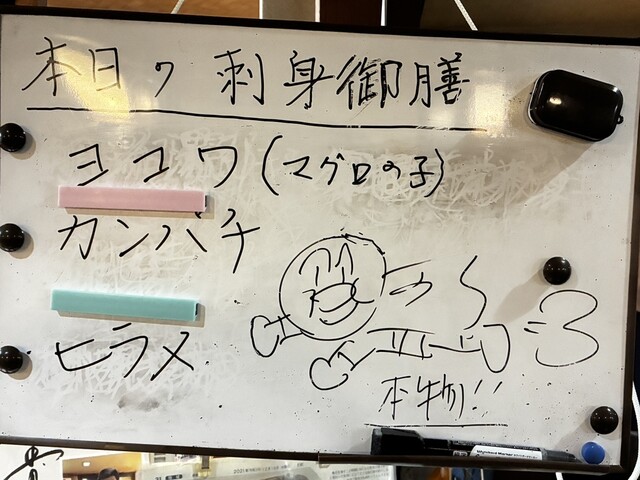 本日の刺身御膳
ヨコワ(マグロの子)
カンパチ
ヒラメ
本物!!